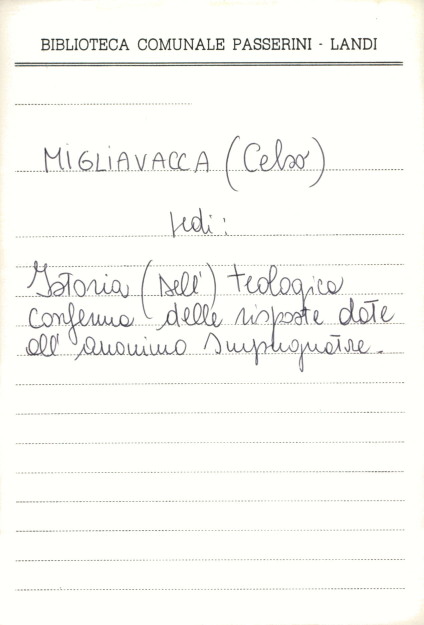 BIBLIOTECA COMUNALE PASSERINI - LANDI
MIGLIAVACCA (Celso)
Vedi:
Istoria (Dell') teologica
conferma delle risposte date
all' anonimo Impugnatore.